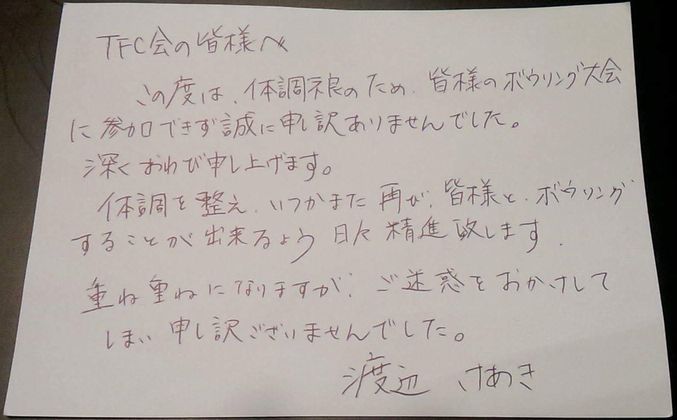 TFC会の皆様へ
この度は、体調不良のため、皆様のボウリング大会
に参加できず誠に申し訳ありませんでした。
深くおわび申し上げます。
体調を整え、いつかまた再び、皆様と、ボウリング
することが出来るよう日々精進致します。
重ね重ねになりますが、ご迷惑をおかけして
しまい申し訳ございませんでした。
渡辺 けあき